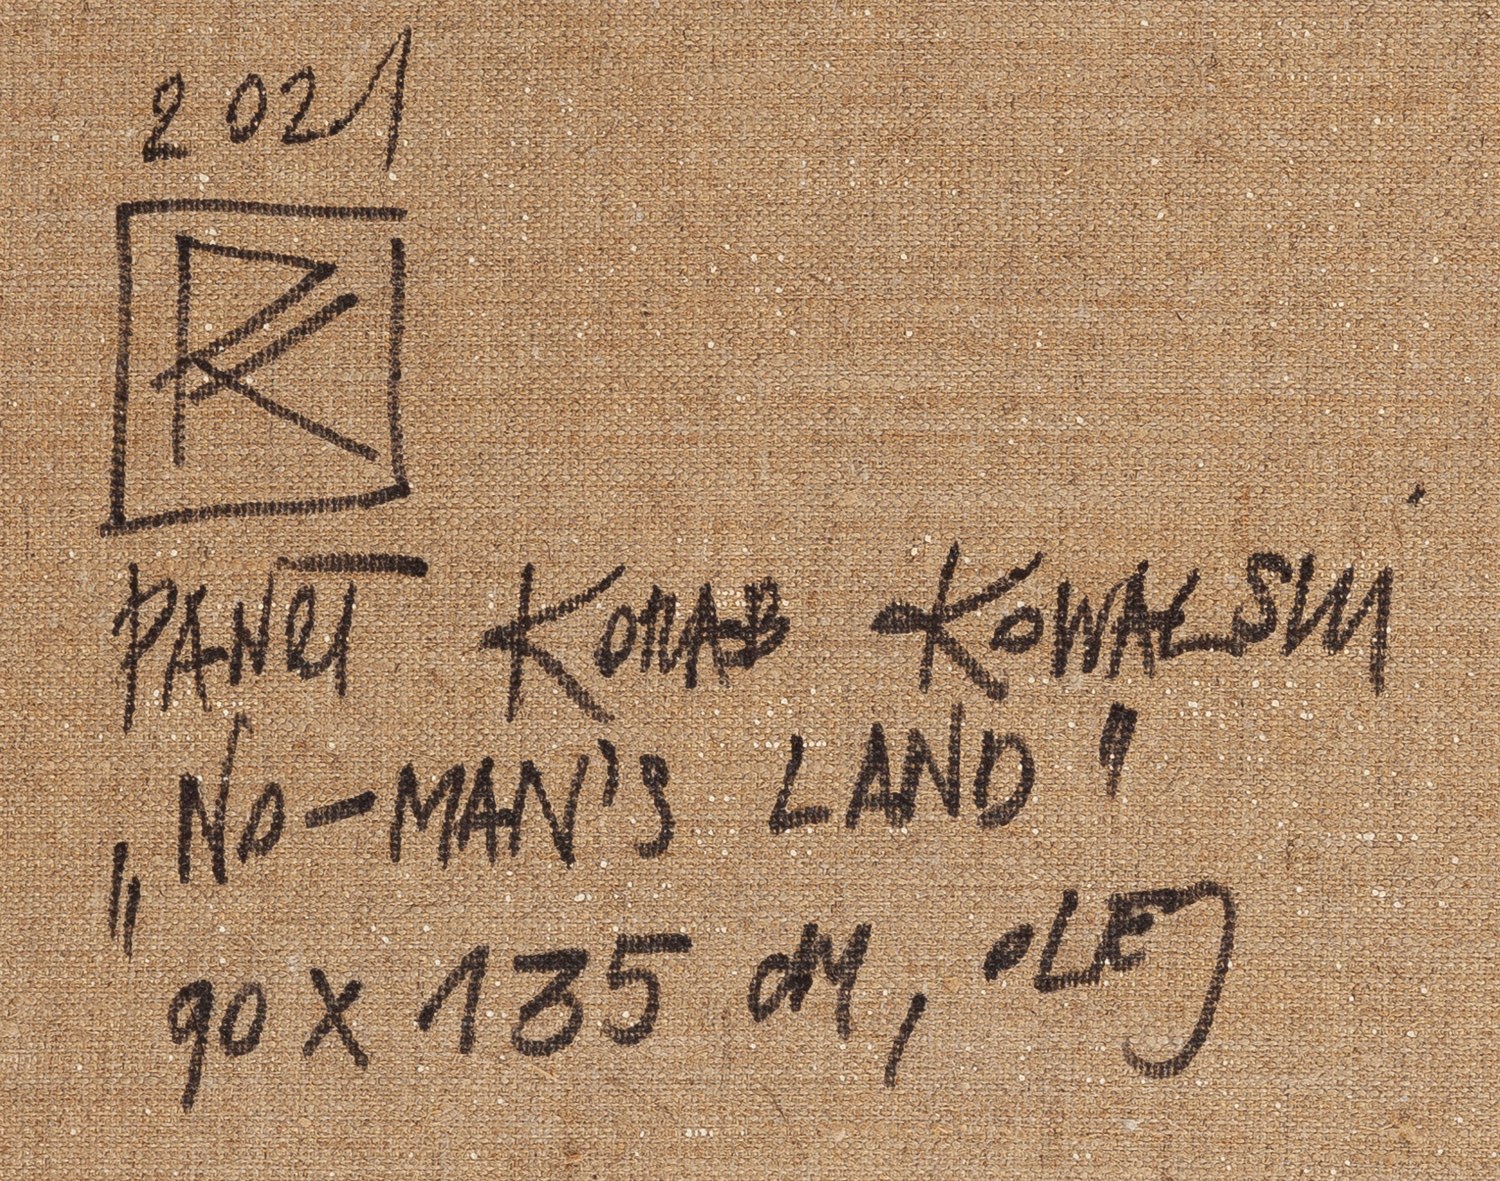 2021
PK
PAWEŁ KORAB KOWALSKI
„NO-MAN'S LAND"
90 X 135 CM, OLEJ